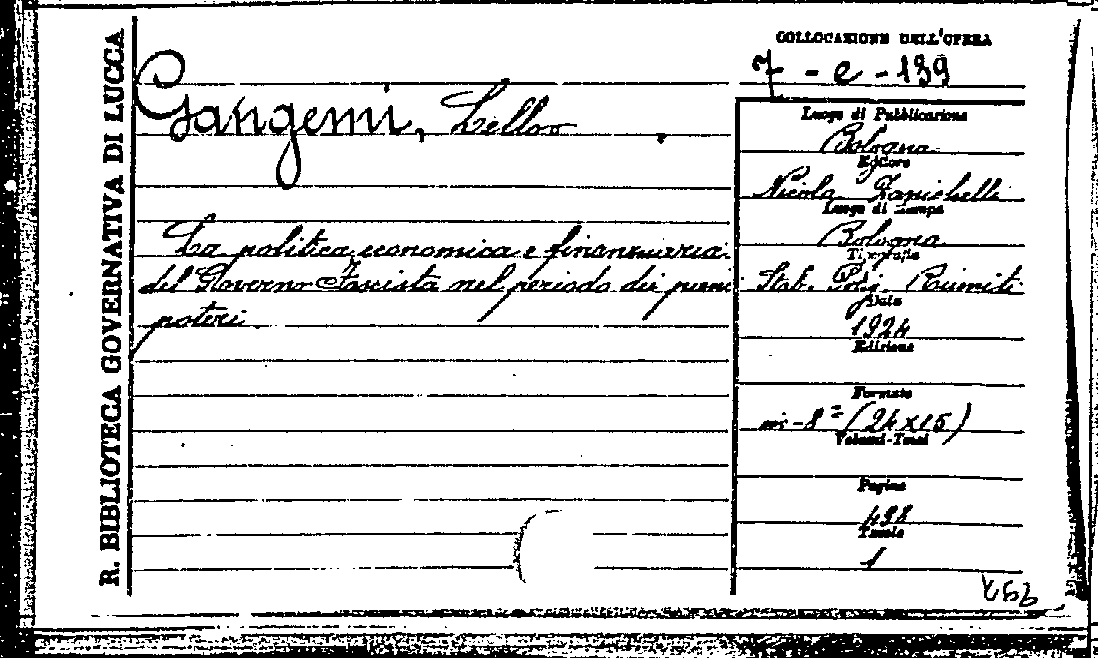 R. BIBLIOTECA GOVERNATIVA DI LUCCA
COLLOCAZIONE DELL'OPERA
7 - e - 139
Gangemi, Lello
La politica economica e finanziaria
del Governo Fascista nel periodo dei pieni
poteri.
Luogo di Pubblicazione
Bologna
Editore
Nicola Zanichelli
Luogo di Stampa
Bologna
Tipografia
Stab. Polig. Riuniti
Data
1924
Edizione
Formato
in-8° (24x15)
Volumi-Tomi
Pagine
498
Tavole
1